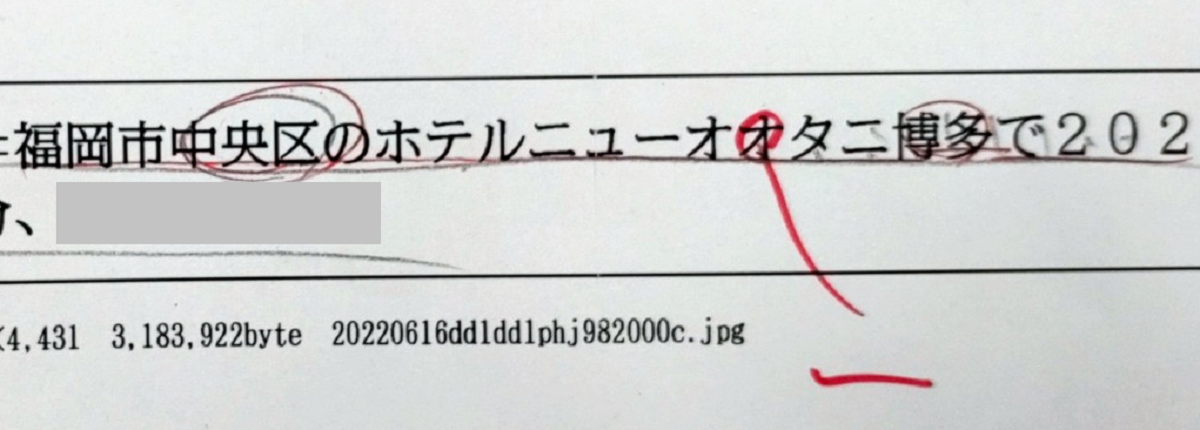 福岡市中央区のホテルニューオオタニ博多で202
、
4,431 3,183,922byte 20220616dd1dd1phj982000c.jpg
ー